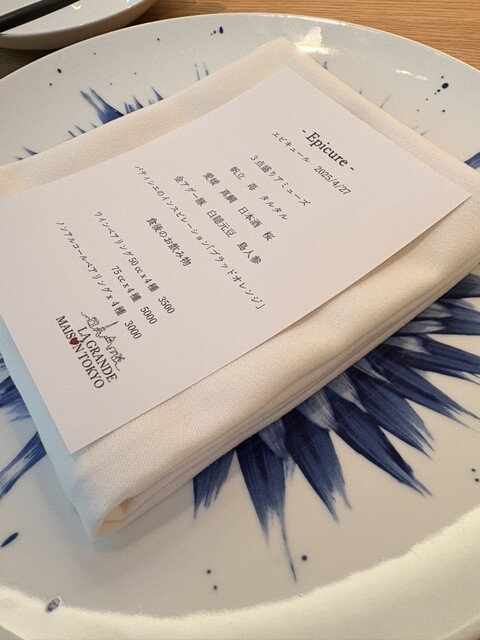 - Epicure -
エピキュール 2025/4/27
3点盛りアミューズ
帆立 苺 タルタル
愛媛 真鯛 日本酒 桜
金アグー豚 白隠元豆 島人参
パティシエのインスピレーション「ブラッドオレンジ」
食後のお飲み物
ワインペアリング50cc x 4種 3500
75cc x 4種 5000
ノンアルコールペアリング x 4種 3000
LA GRANDE
MAISON TOKYO